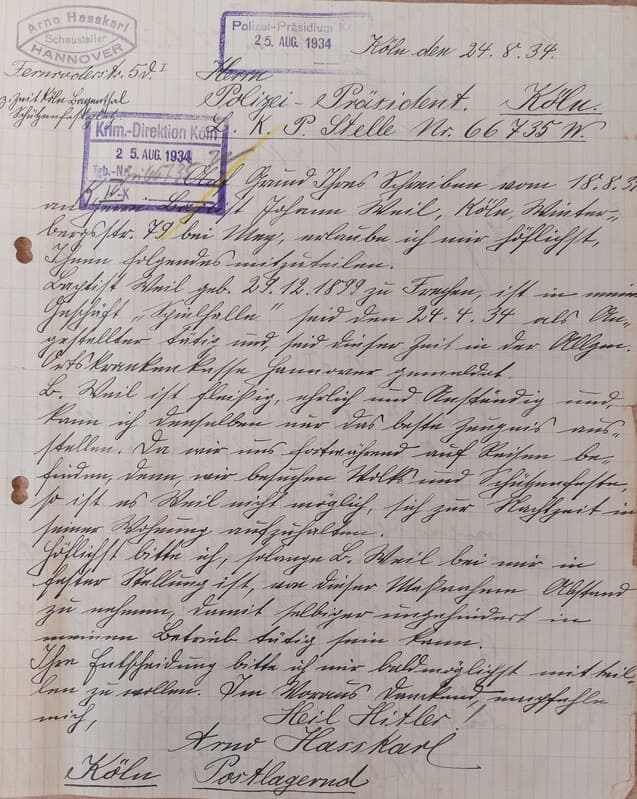 Arno Hasskarl
Schausteller
HANNOVER
Fernroderstr. 5d I
z. Zeit Köln Bayenthal
Schützenfestplatz
Polizei-Präsidium K
25. AUG. 1934
Köln den 24.8.34.
Herrn
Polizei-Präsident. Köln.
K. P. Stelle Nr. 66735 W
Krim.-Direktion Köln
25. AUG. 1934
Tgb.-Nr.
Auf Grund Ihres Schreiben vom 18.8.3
an Johann Weil, Köln, Winter-
bergsstr. 79 bei Mey, erlaube ich mir höflichst,
Ihnen folgendes mitzuteilen.
Baptist Weil geb. 29.12.1899 zu Frechen, ist in mein
Geschäft „Spielhalle" seid den 24.4.34 als An-
gestellter tätig und, seid dieser Zeit in der Allgm.
Ortskrankenkasse Hannover gemeldet.
B. Weil ist fleißig, ehrlich und Anständig und,
kann ich demselben nur das beste Zeugnis aus-
stellen. Da wir uns fortwährend auf Reisen be-
finden, denn, wir besuchen Volks und Schützenfeste,
so ist es Weil nicht möglich, sich zur Nachtzeit in
seiner Wohnung aufzuhalten.
Höflichst bitte ich, solange B. Weil bei mir in
fester Stellung ist, von dieser Maßnahme Abstand
zu nehmen, damit selbiger ungehindert in
meinen Betrieb tätig sein kann.
Ihre Entscheidung bitte ich mir baldmöglichst mitteil-
len zu wollen. Im Voraus Dankend, empfehle
mich,
Heil Hitler!
Arno Hasskarl
Köln Postlagernd